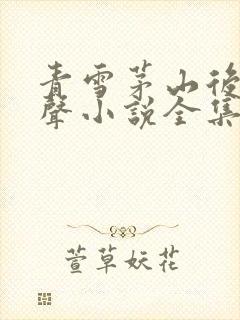 青雪茅山後
聲小說全集
萱草妖花